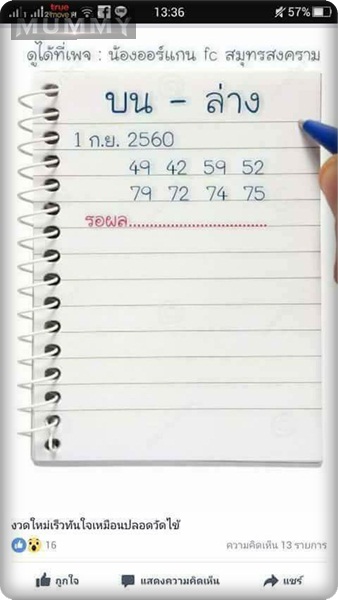 true
move H
13:36
57%
MUMMY
ดูได้ที่เพจ : น้องออร์แกน fc สมุทรสงคราม
บน - ล่าง
1 ก.ย. 2560
49 42 59 52
79 72 74 75
รอผล................................
งวดใหม่เร็วทันใจเหมือนปลอดวัดไข้
16
ความคิดเห็น 13 รายการ
ถูกใจ
แสดงความคิดเห็น
แชร์